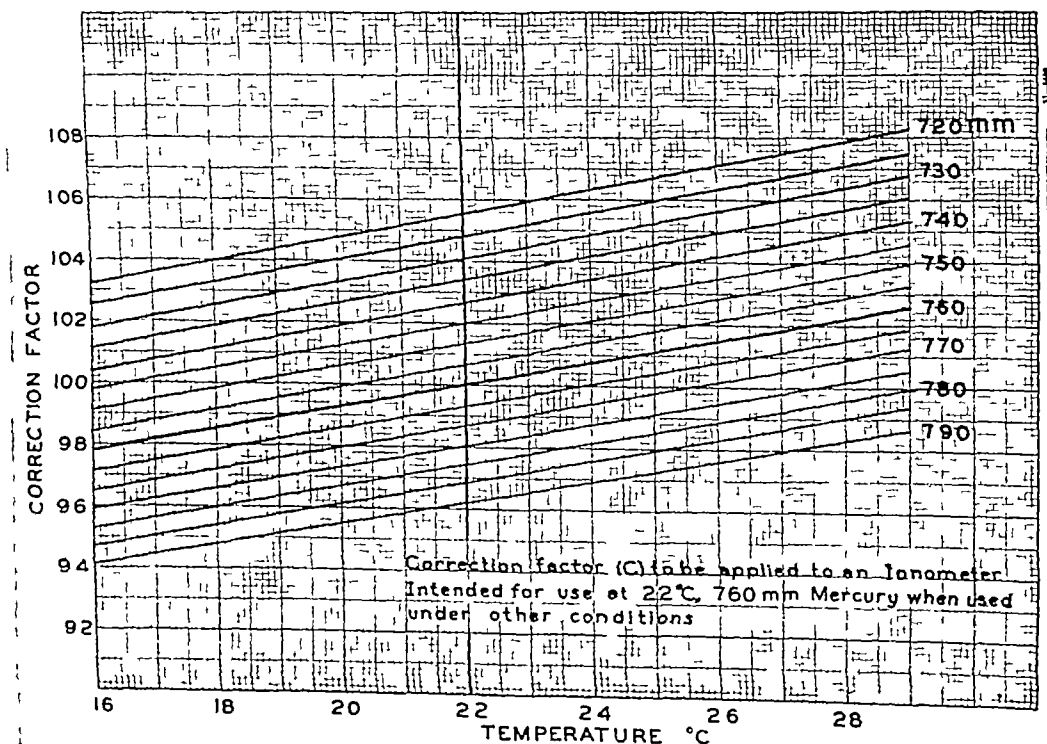 108
106
104
102
100
98
96
94
92
CORRECTION FACTOR
720mm
730
740
750
760
770
780
790
Correction factor (C) to be applied to an Ionometer
Intended for use at 22°C, 760 mm Mercury when used
under other conditions
16 18 20 22 24 26 28
TEMPERATURE °C